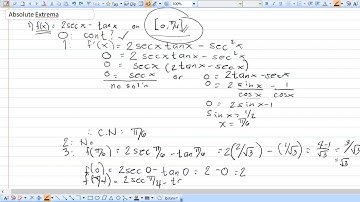 Absolute Extrema
1) f(x) = 2secx - tanx on [0, π/4]
0: cont? ✓
1: f'(x) = 2secx tanx - sec²x
0 = 2secx tanx - sec²x
0 = secx (2tanx - secx)
0 = secx or 0 = 2tanx - secx
no sol'n
0 = 2 sinx/cosx - 1/cosx
0 = 2sinx - 1
sinx = 1/2
x = π/6
∴ C.N: π/6
2: No
3: f(π/6) = 2sec π/6 - tan π/6 = 2(2/√3) - (1/√3) = 4-1/√3 = 3/√3
f(0) = 2sec0 - tan0 = 2 - 0 = 2
f(π/4) = 2sec π/4 - t